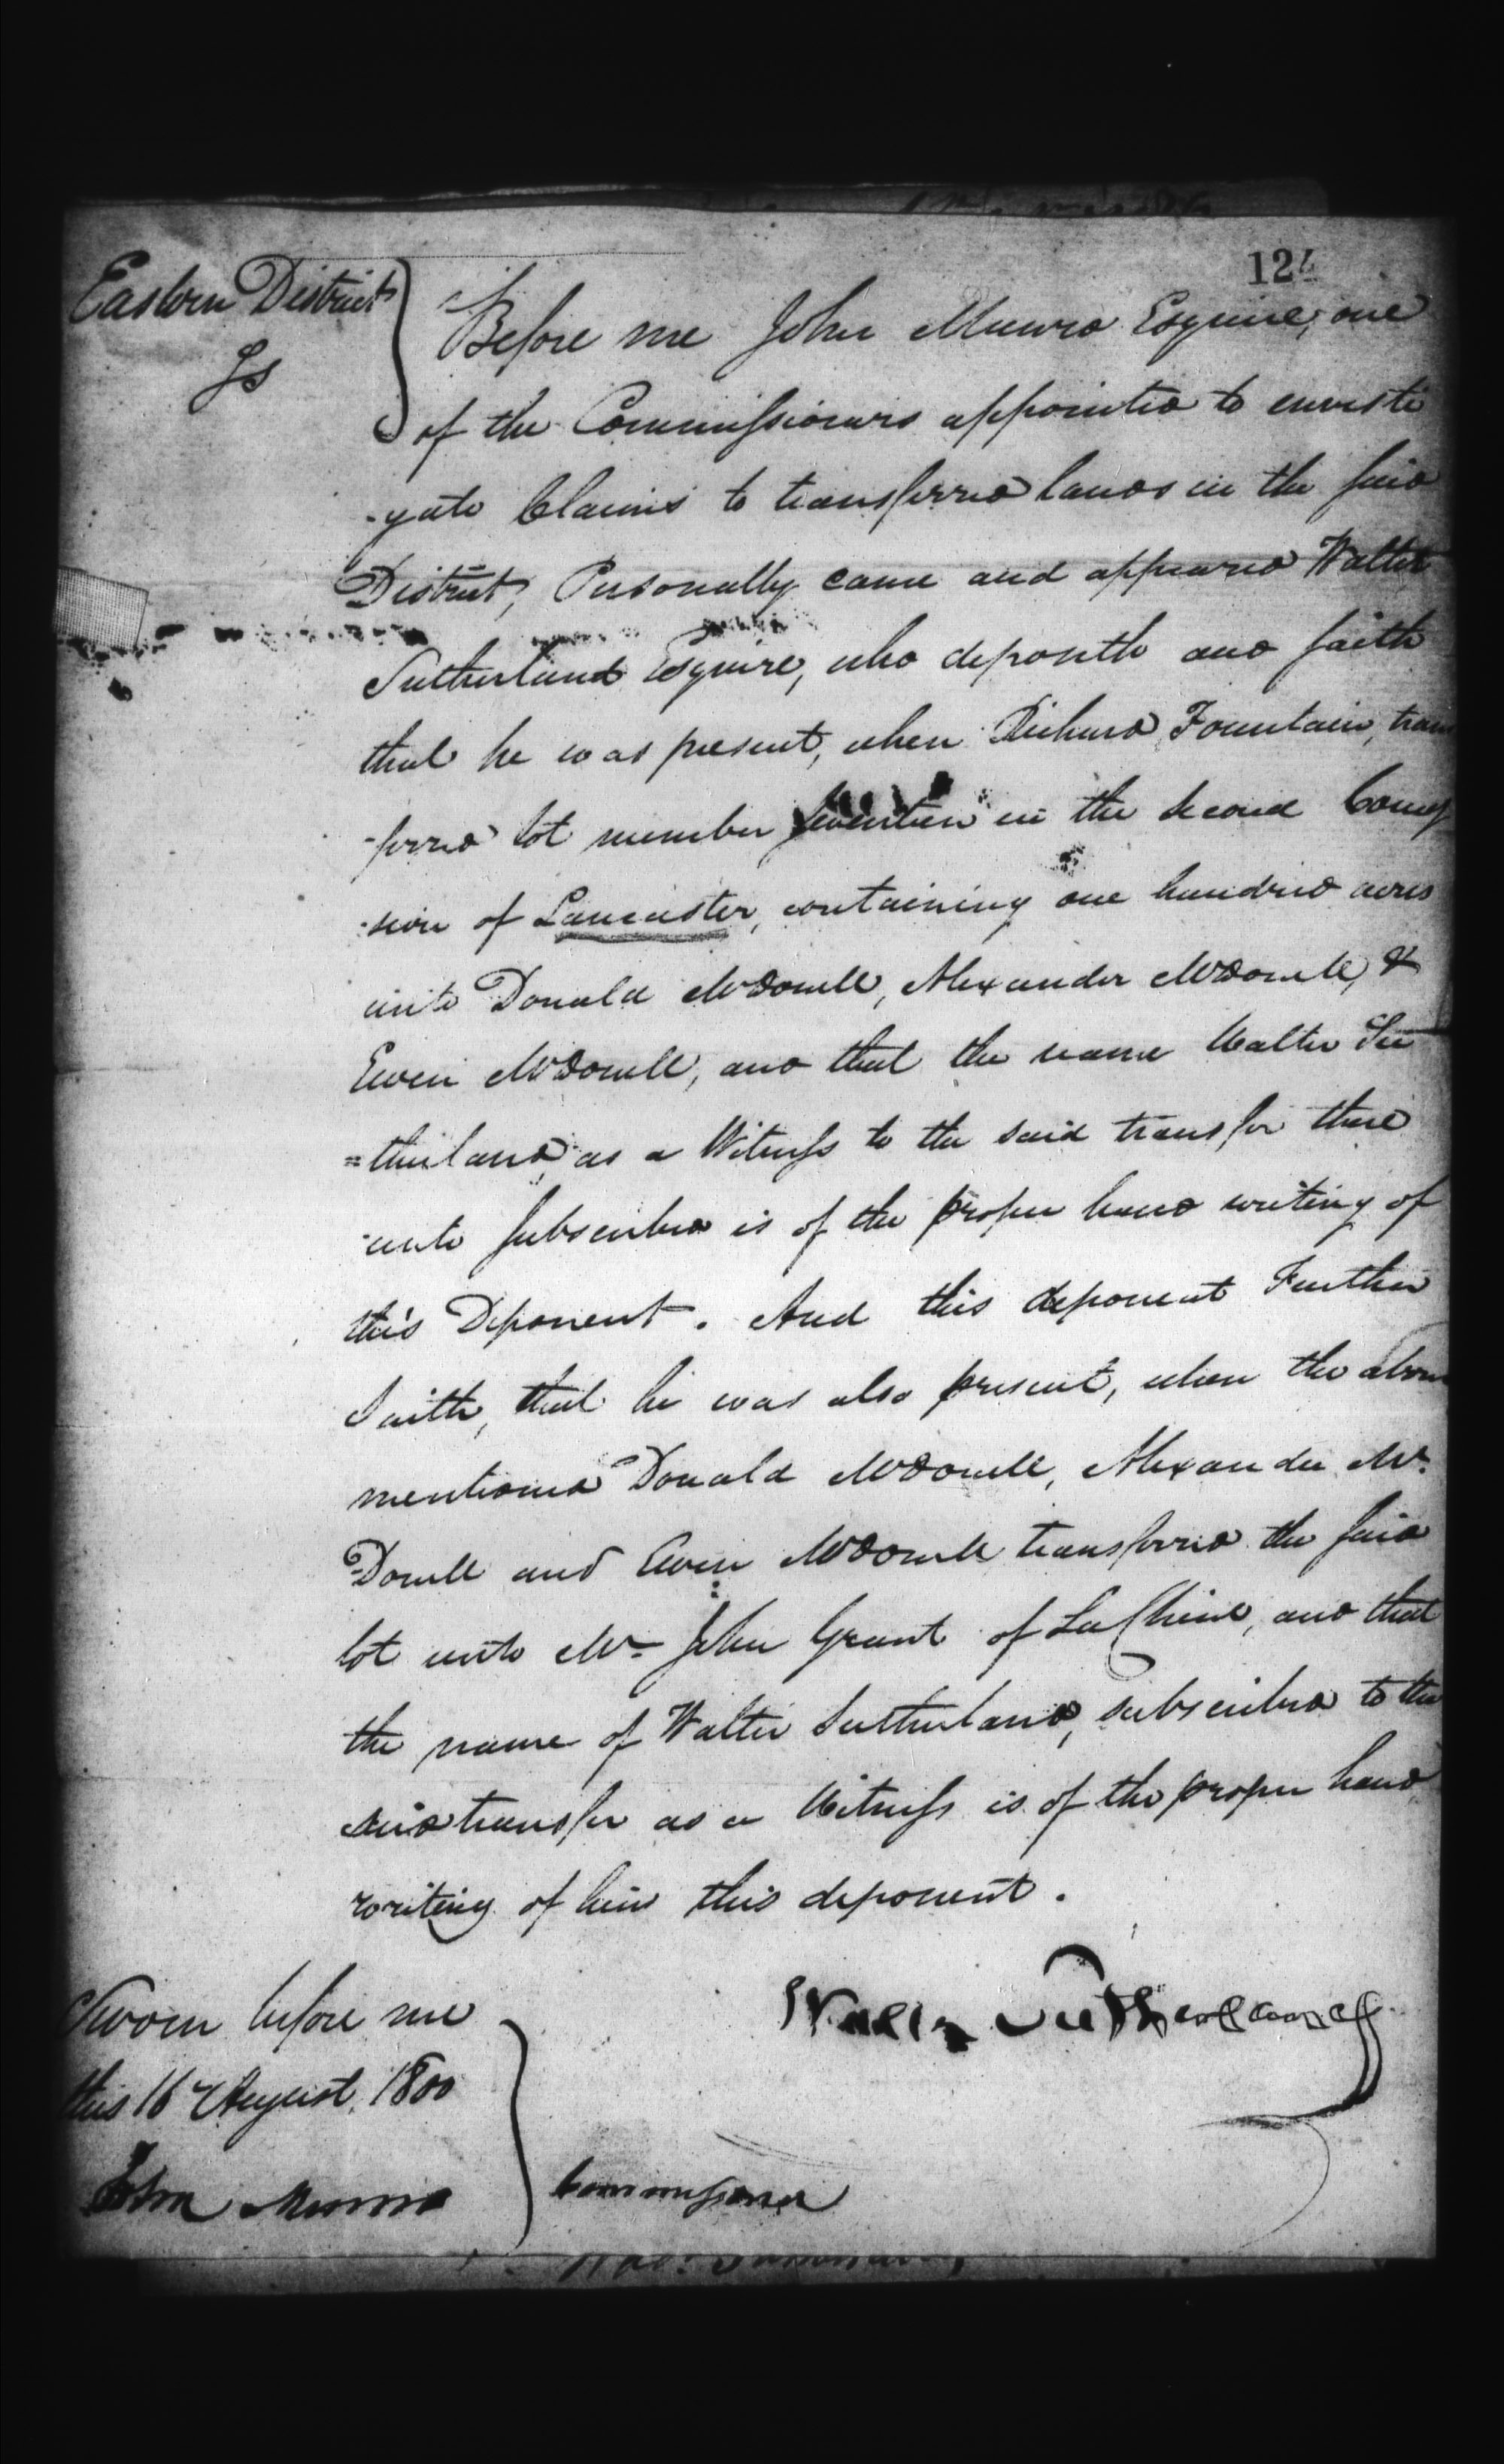 124
Eastern District
Ss
Before me John Munro Esquire, one
of the Commissioners appointed to envesti
-gate Claims to transferred lands in the said
District, Personally came and appeared Walter
Sutherland Esquire, who deposeth and saith
that he was present, when Richard Fountain, trans
-ferred lot number Seventeen in the second Conces
-sion of Lancaster, containing one hundred acres
unto Donald McDonell, Alexander McDonell, &
Ewen McDonell, and that the name Walter Su
=therland as a Witness to the said transfer there
-unto subscribed is of the proper hand writing of
this Deponent. And this deponent Further
Saith, that he was also present, when the above
mentioned Donald McDonell, Alexander Mc.
-Donell and Ewen McDonell transferred the said
lot unto Mr John Grant of La Chine, and that
the name of Walter Sutherland, subscribed to the
said transfer as a Witness is of the proper hand
writing of him this deponent.
Walter Sutherland
Sworn before me
this 16 August, 1800
John Munro
Commissioner